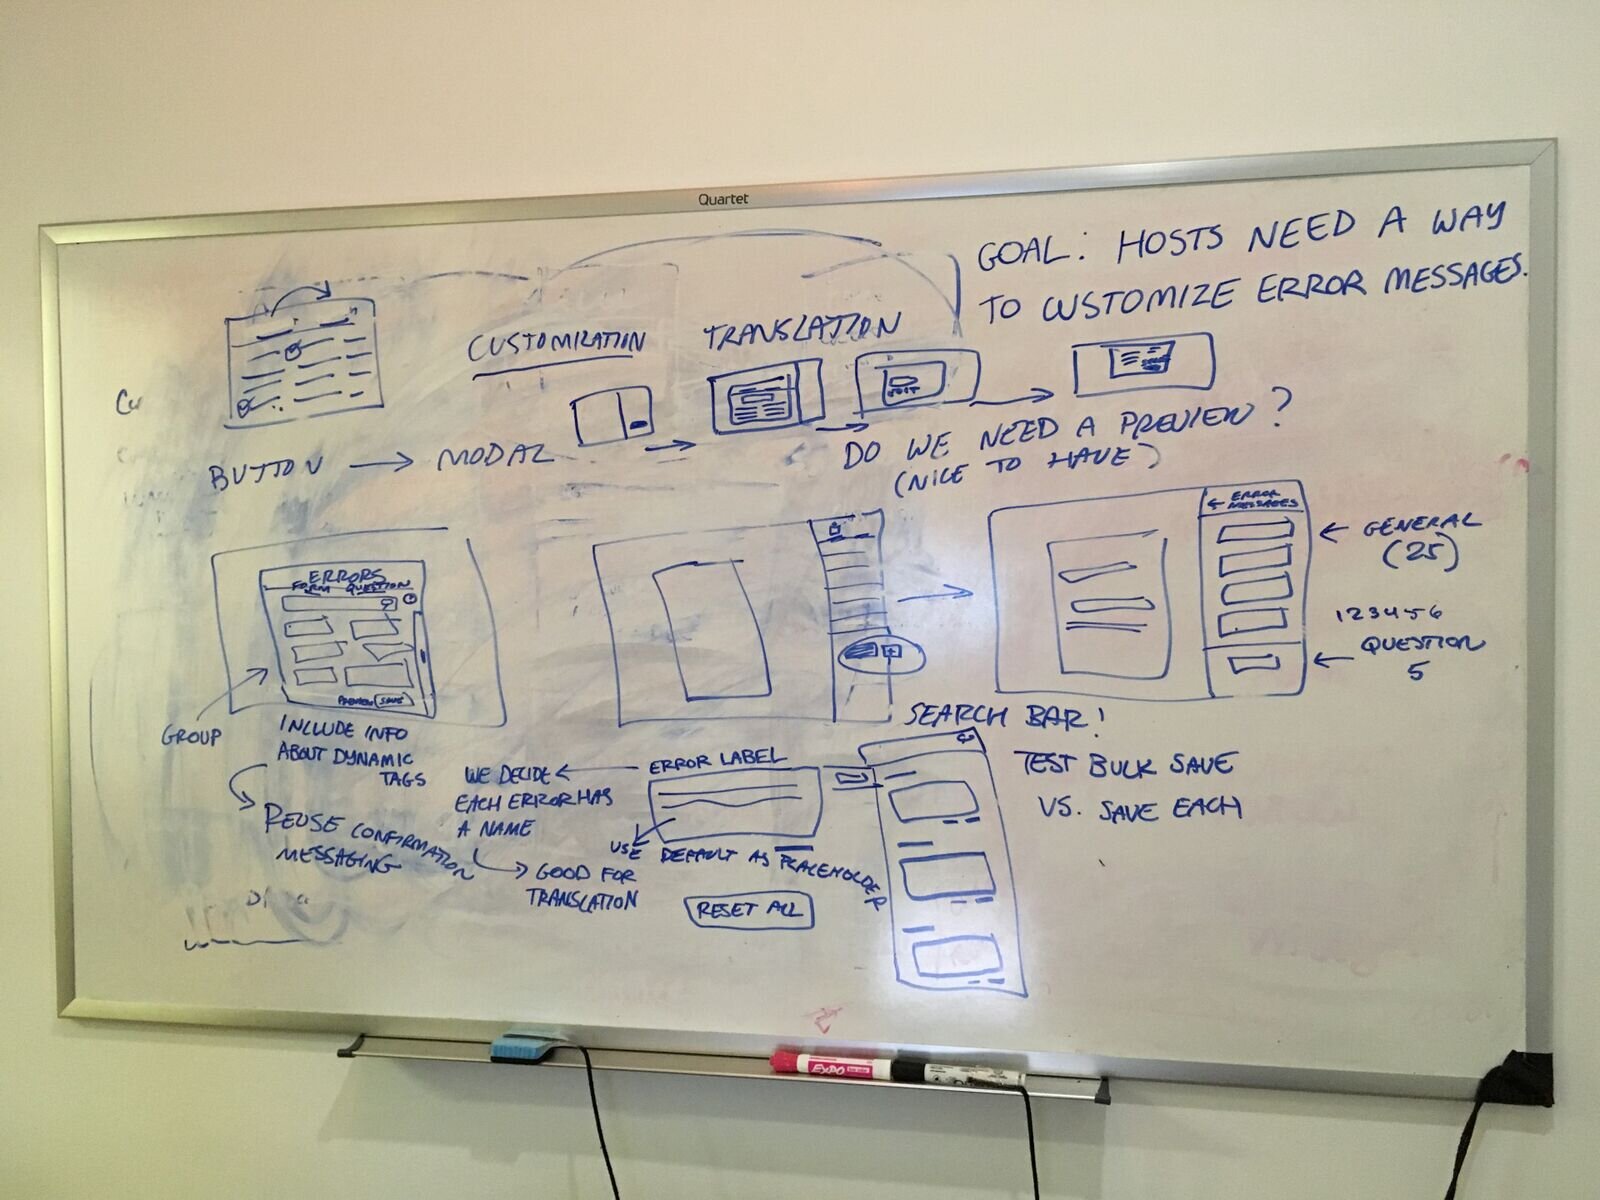 Quartet
GOAL: HOSTS NEED A WAY
TO CUSTOMIZE ERROR MESSAGES.
CUSTOMIZATION
TRANSLATION
EDIT
BUTTON → MODAL
DO WE NEED A PREVIEW?
(NICE TO HAVE)
ERRORS
FORM QUESTION
PREVIEW SAVE
GROUP
INCLUDE INFO
ABOUT DYNAMIC
TAGS
REUSE CONFIRMATION
MESSAGING
← ERROR
MESSAGES
← GENERAL
(25)
123456
← QUESTION
5
SEARCH BAR!
TEST BULK SAVE
VS. SAVE EACH
WE DECIDE ← ERROR LABEL
EACH ERROR HAS
A NAME
→ GOOD FOR
TRANSLATION
USE DEFAULT AS PLACEHOLDER
RESET ALL
EXPO